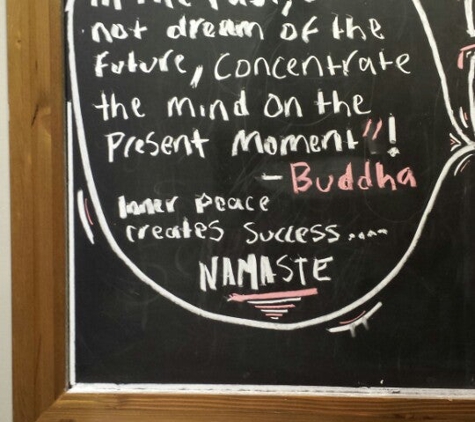 in the Past,
not dream of the
future, Concentrate
the mind on the
Present Moment"!
- Buddha
Inner Peace
creates Success....
NAMASTE